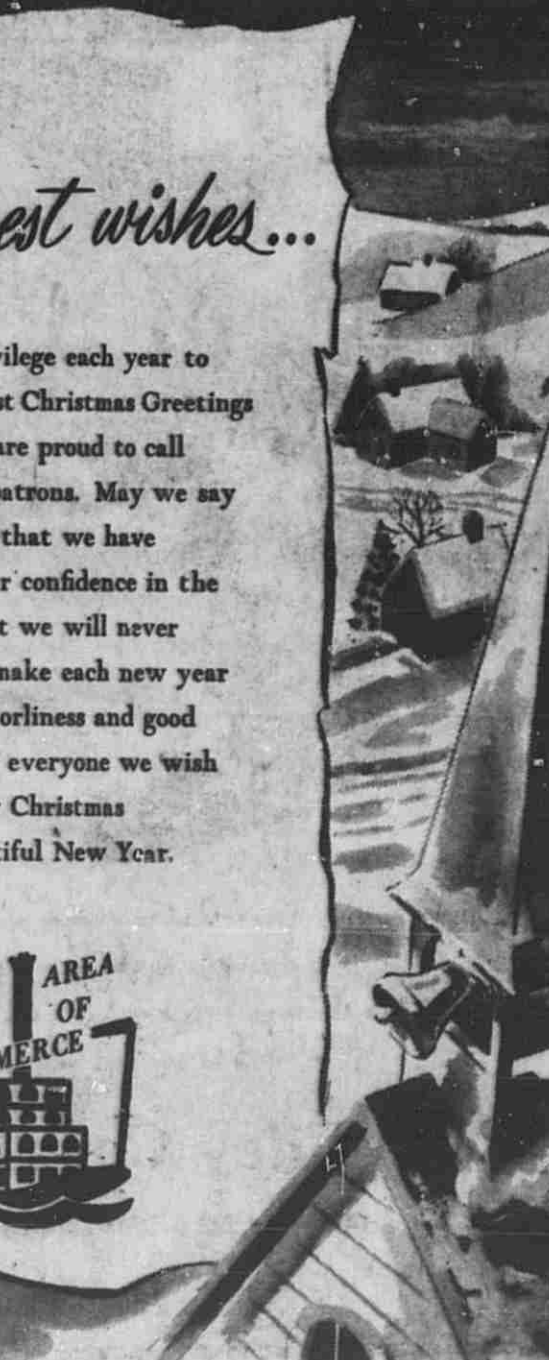 est wishes...
vilege each year to
st Christmas Greetings
are proud to call
patrons. May we say
that we have
r confidence in the
t we will never
make each new year
orliness and good
everyone we wish
Christmas
tiful New Year.
AREA
OF
MERCE